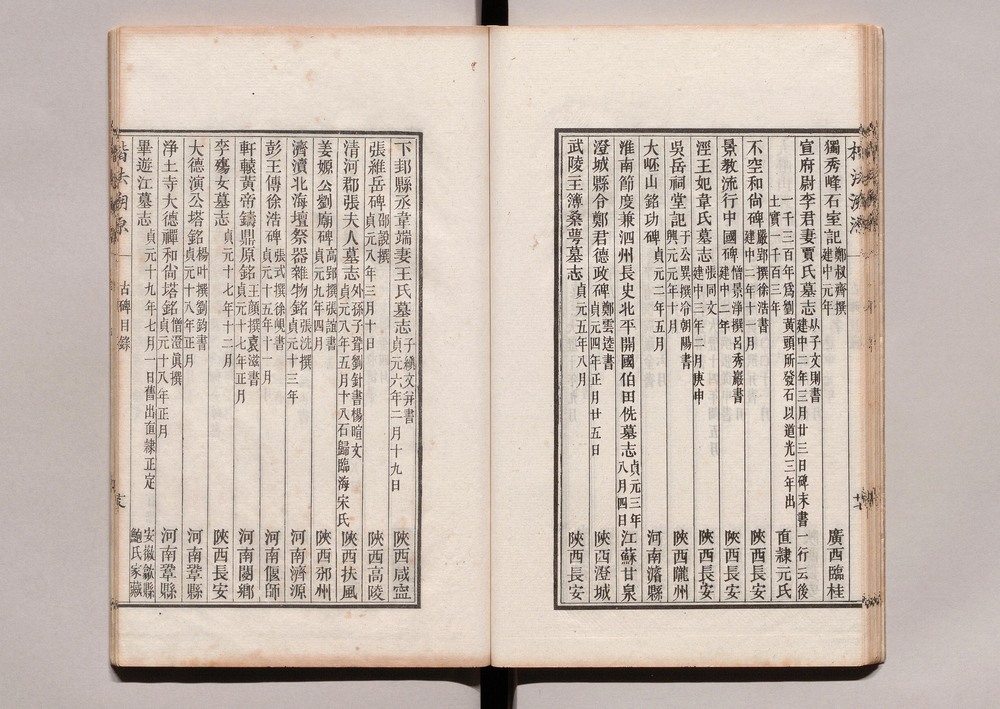 獨秀峰石室記 鄭叔齊撰 建中元年 廣西臨桂
宣府尉李君妻賈氏墓志 从子文則書 建中二年三月廿三日碑末書一行云後
一千三百年爲劉黃頭所發石以道光三年出
土實一千百三年 直隷元氏
不空和尙碑 嚴郢撰徐浩書 建中二年十一月 陜西長安
景教流行中國碑 僧景淨撰呂秀巖書 建中二年 陜西長安
涇王妃韋氏墓志 張同文 建中三年二月庚申 陜西長安
吳岳祠堂記 于公異撰冷朝陽書 興元元年十月 陜西隴州
大岯山銘功碑 貞元二年五月 河南濬縣
淮南節度兼泗州長史北平開國伯田侁墓志 貞元三年八月四日 江蘇甘泉
澄城縣令鄭君德政碑 鄭雲逵書 貞元四年正月廿五日 陜西澄城
武陵主簿桑萼墓志 貞元五年八月 陜西長安
下邽縣丞韋端妻王氏墓志 子縝文弁書 貞元六年二月十九日 陜西咸寍
張維岳碑 邵說撰 貞元八年三月十日 陜西高陵
清河郡張夫人墓志 外孫子聳劉針書楊暄文 貞元八年五月十八石歸臨海宋氏 陜西扶風
姜嫄公劉廟碑 高郢撰張誼書 貞元九年四月 陜西邠州
濟瀆北海壇祭器雜物銘 張洗撰 貞元十三年 河南濟源
彭王傅徐浩碑 張式撰徐峴書 貞元十五年十一月 河南偃師
軒轅黃帝鑄鼎原銘 王顏撰袁滋書 貞元十七年正月 河南閿鄉
李殤女墓志 貞元十七年十二月 陜西長安
大德演公塔銘 楊叶撰劉鈞書 貞元十八年正月 河南鞏縣
淨土寺大德禪和尙塔銘 僧澄眞撰 貞元十八年正月 河南鞏縣
畢遊江墓志 貞元十九年七月一日舊出直隷正定 安徽歙縣鮑氏家藏
古碑目錄